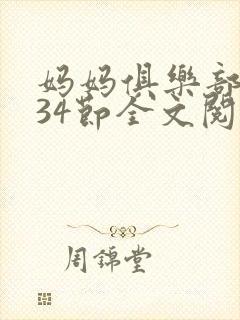 妈妈俱樂部
34節全文閱
周錦堂